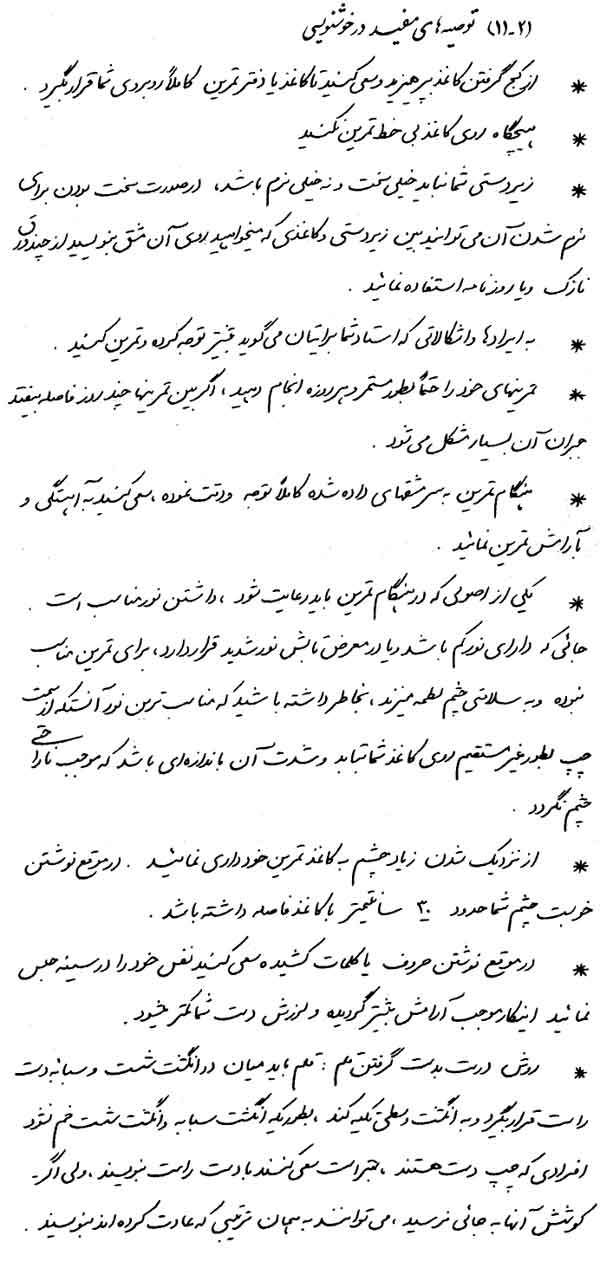 (۲-۱۱) توصیه های مفید در خوشنویسی
* از کج گرفتن کاغذ بپرهیزید و سعی کنید تا کاغذ یا دفتر تمرین کاملاً روبروی شما قرار بگیرد .
* هیچگاه روی کاغذ بی خط تمرین نکنید
* زیر دستی شما نباید خیلی سخت و نه خیلی نرم باشد، در صورت سخت بودن برای
نرم شدن آن می توانید بین زیر دستی و کاغذی که میخواهید روی آن مشق بنویسید از چند ورق
نازک و یا روزنامه استفاده نمائید .
* به ایرادها و اشکالاتی که استاد شما برایتان می گوید بیشتر توجه کرده و تمرین کنید .
* تمرینهای خود را حتماً بطور مستمر و هر روزه انجام دهید ، اگر بین تمرینها چند روز فاصله بیفتد
جبران آن بسیار مشکل می شود .
* هنگام تمرین به سرمشقهای داده شده کاملاً توجه و دقت نموده ، سعی کنید به آهستگی و
با آرامش تمرین نمائید .
* یکی از اصولی که در هنگام تمرین باید رعایت شود ، داشتن نور مناسب است .
جائی که دارای نور کم باشد و یا در معرض تابش نور شدید قرار دارد ، برای تمرین مناسب
نبوده و به سلامتی چشم لطمه میزند ، بخاطر داشته باشید که مناسب ترین نور آنستکه از سمت
چپ بطور غیر مستقیم روی کاغذ شما بتابد و شدت آن باندازه ای باشد که موجب ناراحتی
چشم نگردد .
* از نزدیک شدن زیاد چشم به کاغذ تمرین خودداری نمائید . در موقع نوشتن
خوبست چشم شما حدود ۳۰ سانتیمتر با کاغذ فاصله داشته باشد .
* در موقع نوشتن حروف یا کلمات کشیده سعی کنید نفس خود را در سینه حبس
نمائید اینکار موجب آرامش بیشتر گردیده و لرزش دست شما کمتر میشود .
* روش درست بدست گرفتن قلم : قلم باید میان دو انگشت شست و سبابه دست
راست قرار بگیرد و به انگشت وسطی تکیه کند ، بطوریکه انگشت سبابه و انگشت شست خم نشود
افرادی که چپ دست هستند ، بهتر است سعی کنند با دست راست بنویسند ، ولی اگر -
کوشش آنها به جائی نرسید ، می توانند به همان ترتیبی که عادت کرده اند بنویسند .